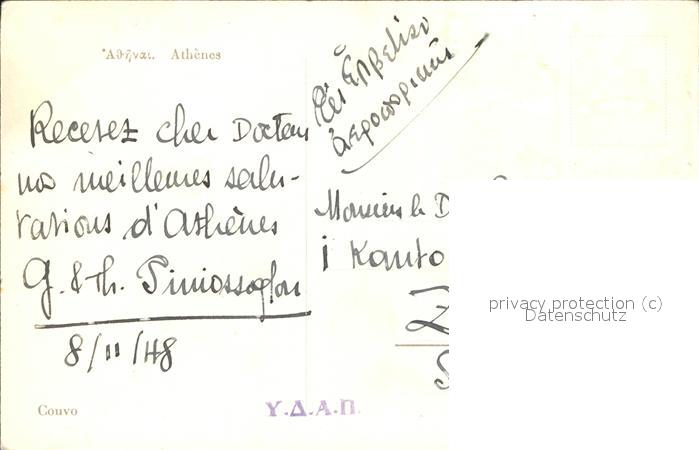 Ἀθῆναι. Athènes
Recevez cher Docteur
nos meilleures salu-
tations d'Athènes
G. & Th.
8/11/48
Couvo
Υ.Δ.Α.Π.
ἀεροπορικῶς
Monsieur le D
i Kanto
privacy protection (c)
Datenschutz